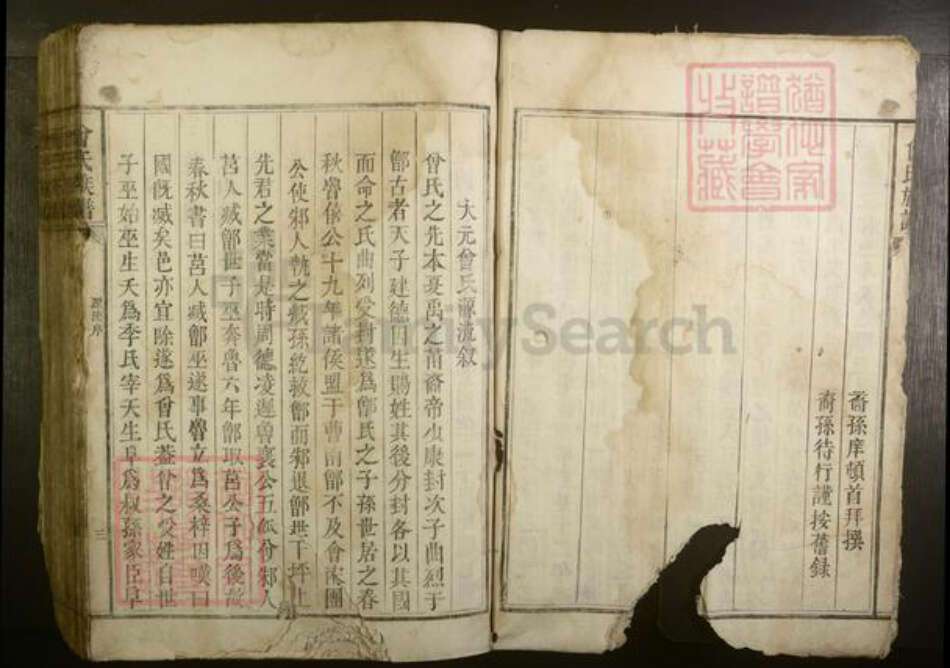 裔孫庠頓首拜撰
裔孫待行謹按舊錄
大元曾氏源流叙
曾氏之先本夏禹之苗裔帝少康封次子曲烈于
鄫古者天子建德因生賜姓其後分封各以其國
而命之氏曲列受封遂為鄫氏之子孫世居之春
秋魯僖公十九年諸侯盟于曹南鄫不及會
公使邾人執之
先君之業當是時周德凌遲魯襄公五年
莒人滅鄫世子巫奔魯六年鄫取莒公子為後故
春秋書曰莒人滅鄫巫遂事魯立為桑梓因嘆曰
國既滅矣邑亦宜除遂為曾氏蓋曾之受姓自世
子巫始巫生夭為季氏宰夭生阜為叔孫家臣阜
曾氏族譜
三
FamilySearch